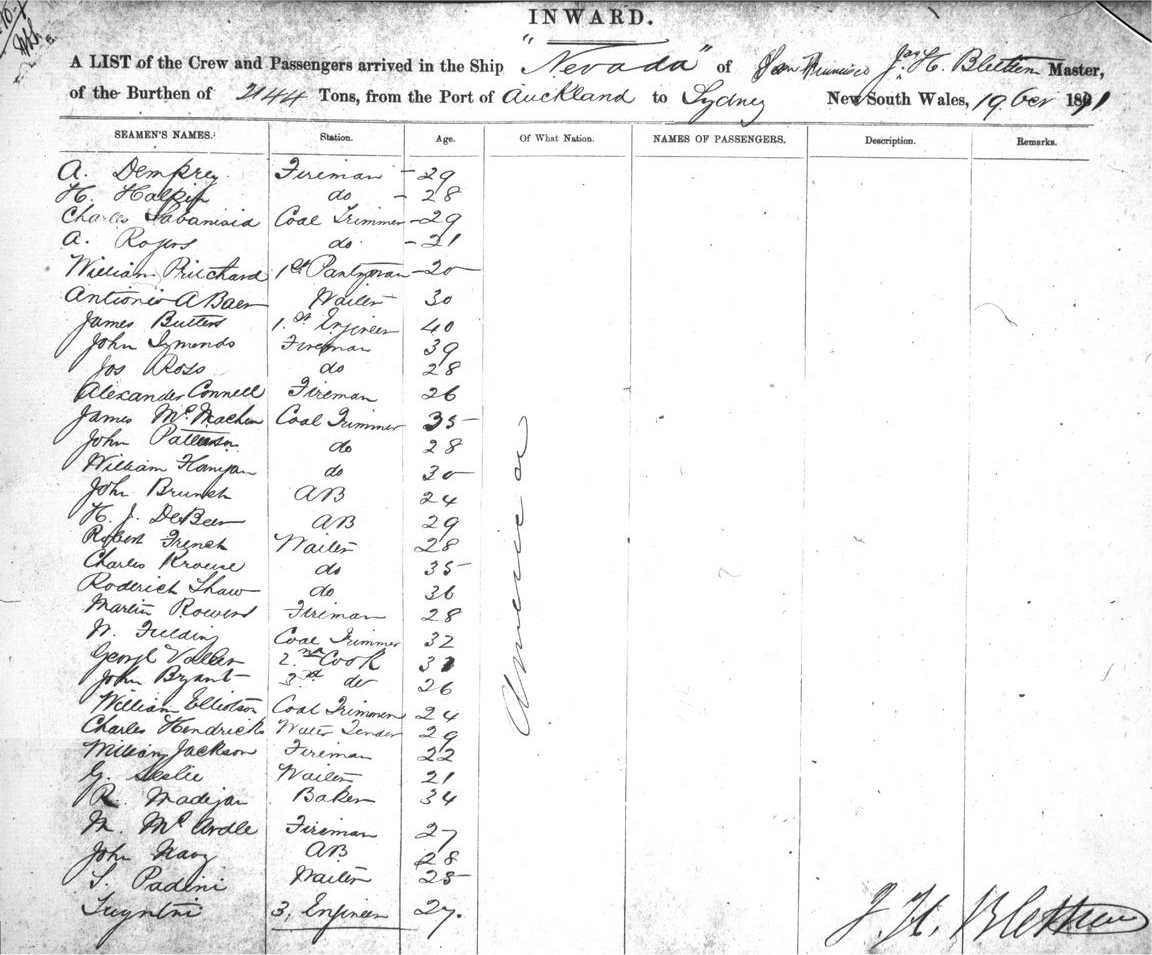 INWARD.
A LIST of the Crew and Passengers arrived in the Ship "Nevada" of San Francisco Jas. H. Blethen Master,
of the Burthen of 2144 Tons, from the Port of Auckland to Sydney New South Wales, 19 Oct 1871
SEAMEN'S NAMES. Station. Age. Of What Nation. NAMES OF PASSENGERS. Description. Remarks.
A. Dempsey Fireman - 29
H. Halpin do - 28
Charles Coal Trimmer - 29
A. Rogers do - 21
William Pritchard 1st Pantryman - 20
Antonio A Baer Waiter 30
James Butters 1.st Engineer 40
John Symonds Fireman 39
Jos Ross do 28
Alexander Connell Fireman 26
James McMachen Coal Trimmer 35
John Patterson do 28
William do 30
John Brunch AB 24
H. J. DeBeer AB 29
Robert French Waiter 28
Charles Krouse do 35
Roderich Shaw do 36
Martin Rowens Fireman 28
W. Fielding Coal Trimmer 32
George 2.nd Cook
John Bryant 3rd do 26
William Elliotson Coal Trimmer 24
Charles Hendricks Water Tender 29
William Jackson Fireman 22
G. Leslie Waiter 21
R. Madigan Baker 34
M. McArdle Fireman 27
John Navy AB 28
S. Padini Waiter 25
3, Engineer 27.
America
J. H. Blethen